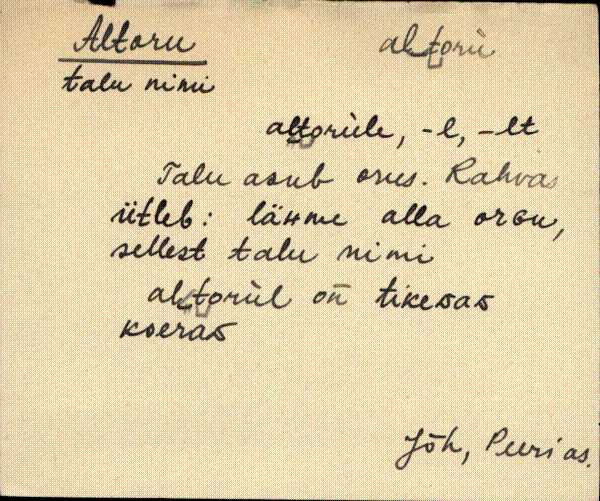 Altoru altorù
talu nimi
altorùle, -l, -lt
Talu asub orus. Rahvas
ütleb: lähme alla orGu,
sellest talu nimi
altorùl on̄ tikeᴅas
koeraᴅ
Jõh, Peeri as.